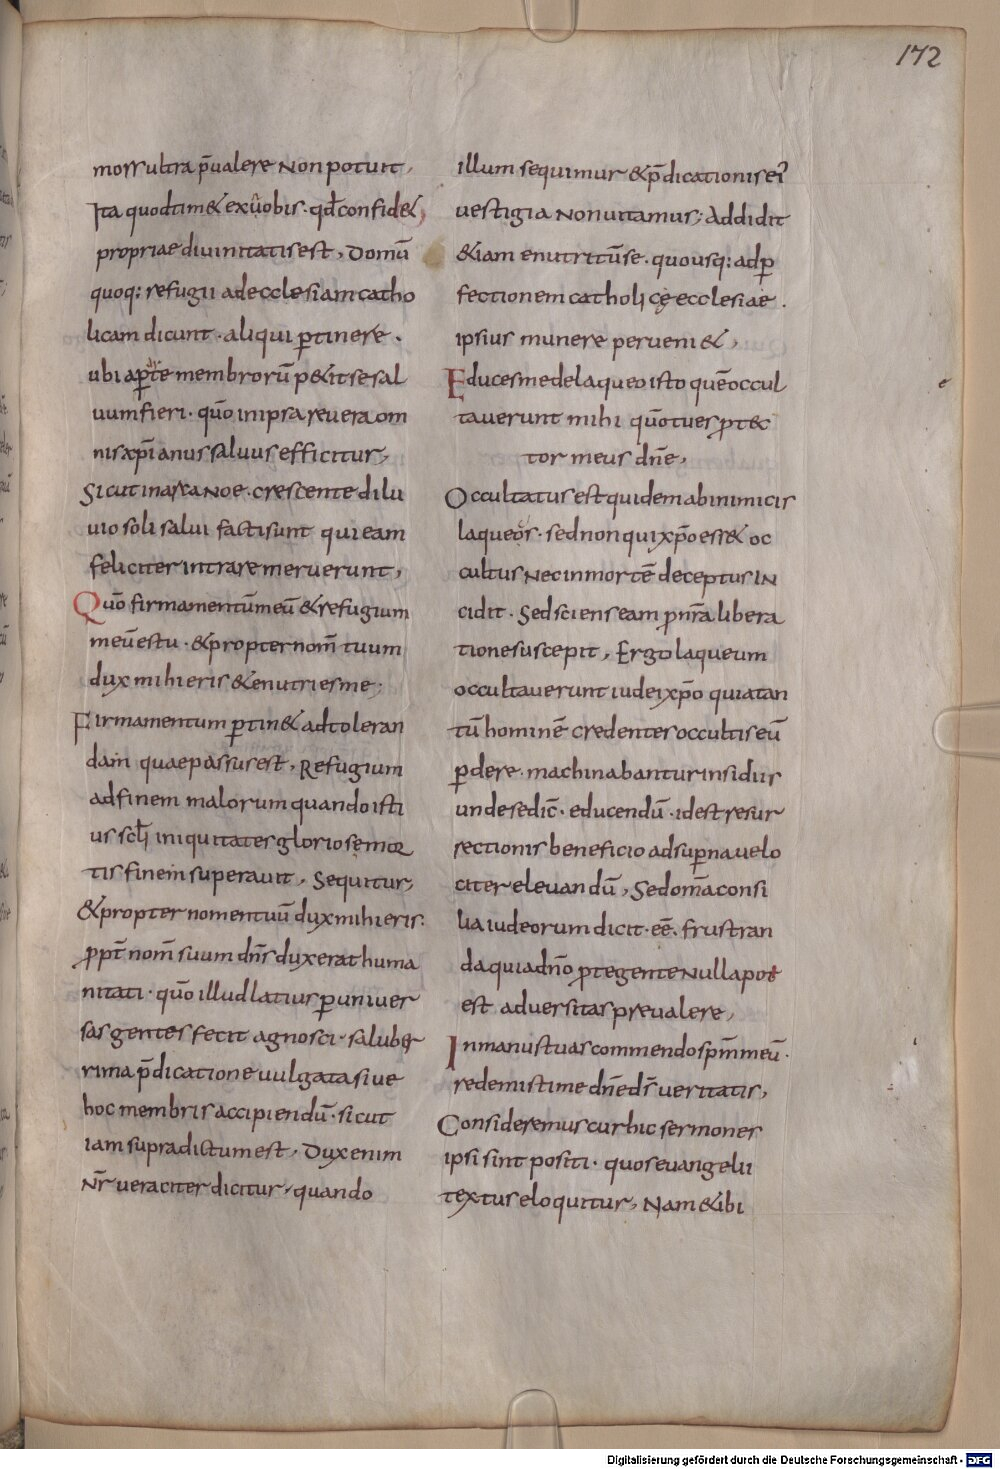 172
morſ ultra p̄ualere non potuit,
Ita quod tim& ex uobis · qđ confid&
propriae diuinitatis est, Domū
quoq: refugii ad ecclesiam catho
licam dicunt · aliqui ꝑtinere .
ubi a ꝑte membrorū p&it se sal
uum fieri · quō in ipsa reuera om
nis xp̄ianus saluus efficitur,
Sicut in arca noe · crescente dilu
uio soli salui facti sunt qui eam
feliciter intrare meruerunt,
Quō firmamentū meū & refugium
meū es tu · & propter nom̄ tuum
dux mihi eris & enutries me;
Firmamentum ꝑtin& ad toleran
dam quae passus est, Refugium
ad finem malorum quando isti
us sc̄li iniquitates gloriose mor
tis finem superauit, Sequitur,
& propter nomen tuū dux mihi eris.
ꝓpt̄ nom̄ suum dn̄s dux erat huma
nitati · quō illud latius ꝑ uniuer
sas gentes fecit agnosci · saluber
rima p̄dicatione uulgata siue
hoc membris accipiendū · sicut
iam supra dictum est, Dux enim
nr̄ ueraciter dicitur, quando
illum sequimur & p̄dicationis ei'
uestigia non uitamus; Addidit
&iam enutritū se · quousq: ad ꝑ
fectionem catholicę ecclesiae .
ipsius munere perueni&,
Educes me de laqueo isto quē occul
tauerunt mihi quō tu es ꝓtec
tor meus dn̄e,
Occultatus est quidem ab inimicis
laqueos · sed non qui xp̄o ess& oc
cultus nec in mortē deceptus in
cidit · Sed sciens eam ꝓ nr̄a libera
tione suscepit, Ergo laqueum
occultauerunt iudei xp̄o quia tan
tū hominē credentes occultis eū
ꝑdere · machinabantur insidiis
unde se dic̄ · educendū · id est resur
rectionis beneficio ad suꝑna uelo
citer eleuandū, Sed om̄a consi
lia iudeorum dicit · eē · frustran
da quia dn̄o ꝓtegente nulla pot
est aduersitas preualere,
In manus tuas commendo spm̄ meū ·
redemisti me dn̄e ds̄ ueritatis,
Consideremus cur hic sermones
ipsi sint positi · quos euangelii
textus eloquitur, Nam & ibi
Digitalisierung gefördert durch die Deutsche Forschungsgemeinschaft - DFG